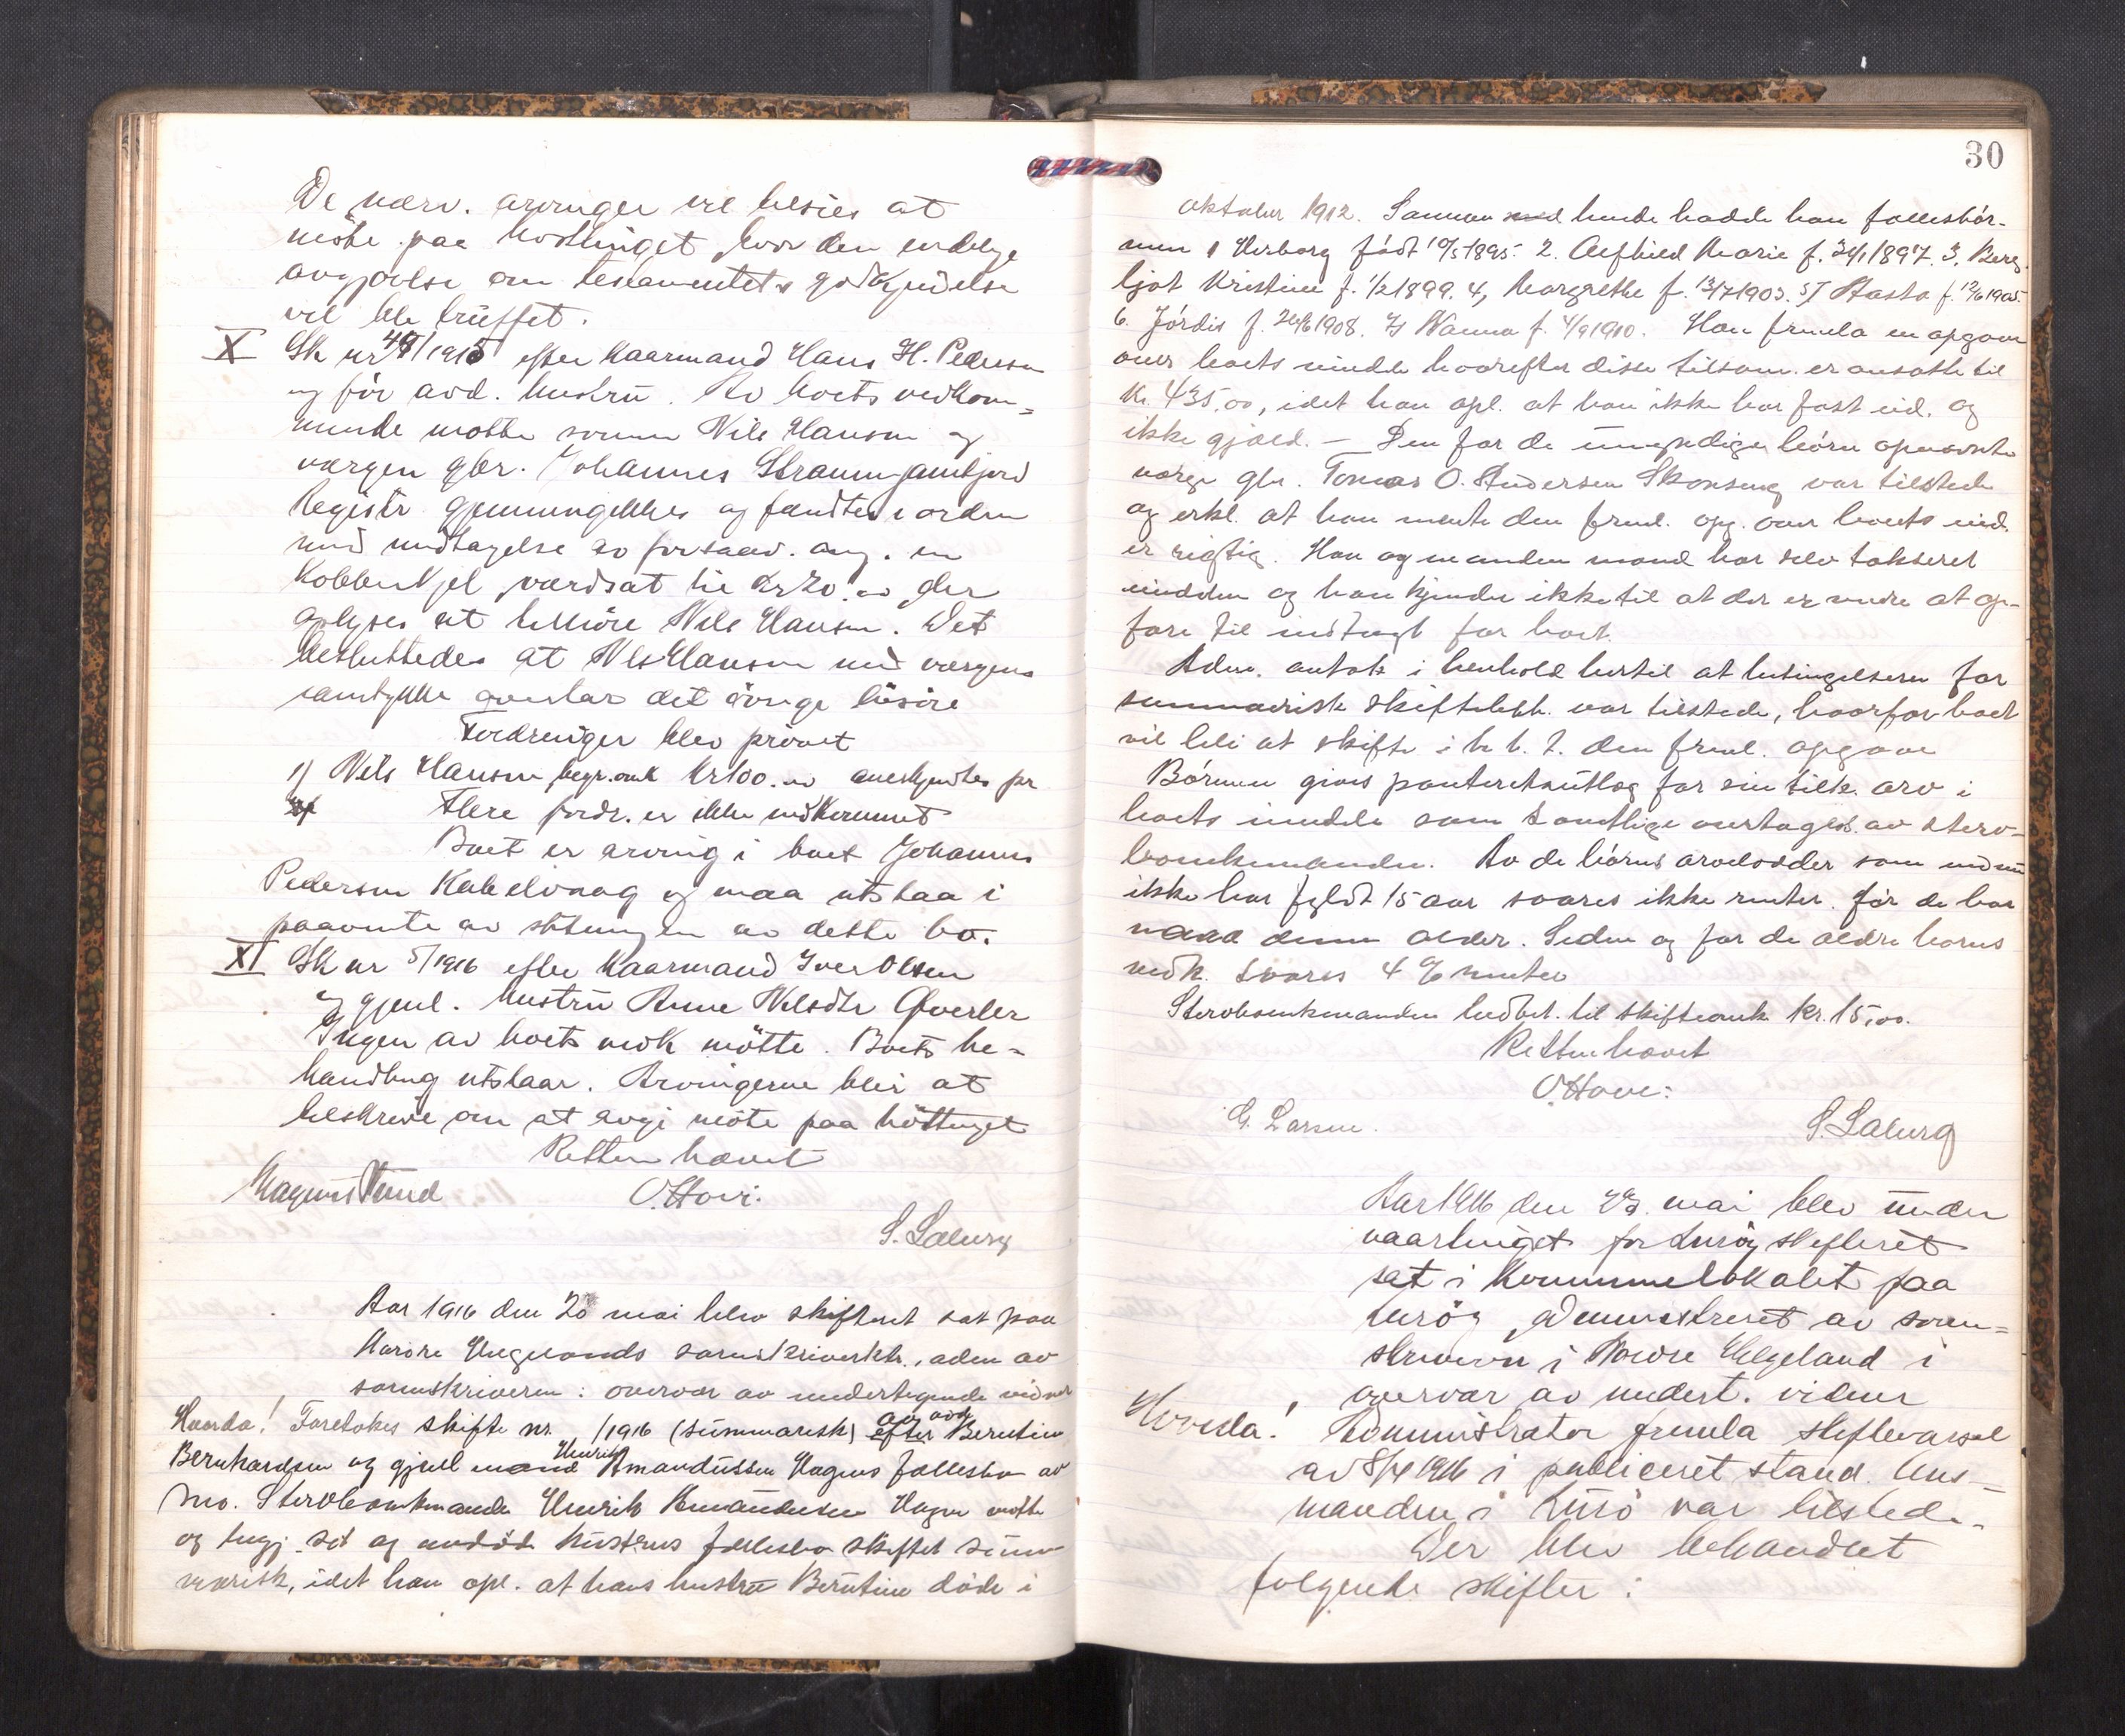 De nærv. arvinger vil tilsies at
møte paa hosttinget hvor den endelige
avgjørelse om testamentets godkjendelse
vil ble truffet.
X Sk nr 48/1915 efter kaarmand Hans H. Pedersen
og før avd. hustru. Av boets vedkom=
mende møtte sønnen Nils Hansen og
værgen gbr. Johannes Straum
Registr gjennemgikkes og fandtes i orden
med undtagelse av forsaav. ang. en
Kobberkjel værdsat til kr 20.00 der
oplyses at tilhøre Nils Hansen. Det
besluttedes at Nils Hansen med værgens
samtykke overtar det øvrige løsøre
Fordringer blev prøvet
1) Nils Hansen, begr.omk kr 100.00 anerkjendtes pr
Flere fordr. er ikke indkommet
Boet er arving i boet Johannes
Pedersen Kabelvaag og maa utstaa i
paavente av slutningen av dette bo.
XI Sk nr 5/1916 efter kaarmand Iver Olsen
og gjenl. hustru Anne Nilsdtr Kverler
Ingen av boets vedk møtte. Boets be=
handling utstaar. Arvingerne blir at
tilskrive om at avgi møte paa høsttinget
Retten hævet
Magnus O.Hove:
S. Solberg
Aar 1916 den 20 mai blev skifteret sat paa
Nordre Helgelands sorenskriverktr., adm av
sorenskriveren i overvær av undertegnede vidner
Hovda! Foretokes skifte nr /1916 (summarisk) efter av avd Berntine
Bernhardsen og gjenl mand Henrik Amandussen Hagens fællesbo av
Mo. Sterbboenkemanden Henrik Amandussen Hagen møtte
og begj. sit og avdøde hustrus fællesbo skiftet sum
marisk, idet han opl. at hans hustru Berntine døde i
30
oktober 1912. Sammen med hende hadde han fællesbør-
nene 1 Herborg født 10/5 1895. 2. Alfhild Marie f. 24/1 1897. 3, Berg
ljot Kristine f. 1/2 1899. 4, Margrethe f. 13/7 1903. 5/ Aasta f. 12/6 1905.
6. Jórdis f. 26/6 1908. 7, Nanna f. 4/9 1910. Han fremla en opgave
over boets midde hvorefter disse tilsam. er ansatte til
Kr. 435,00, idet han opl. at han ikke har fast eid. og
ikke gjæld. - Den for de umyndige børn opnævnte
verge gbr. Tomas O. Andersen Skonseng var tilstede
og erkl. at han mente den freml. opg. over boets eid.
er rigtig. Han og en anden mand har selv taksert
midden og han kjender ikke til at der er mere at op-
føre til indtægt for boet.
Adm. antok i henhold hertil at betingelsene for
summarisk skiftebeh. var tilstede, hvorfor boet
vil bli at skifte i h. t. den freml. opgave
Börnene gives panteretsutlæg for sin tilk. arv i
boets midde som samtlige overtages av sterv-
boenkemanden. Av de børns arvelodder som endnu
ikke har fyldt 15 aar svares ikke renter før de har
naaad denne alder. Siden og for de ældre børns
vedk. svares 4 % renter
Stervboenkemanden indbet. til skifteomk kr. 15,00.
Retten hævet
O.Hove:
G. Larsen.
S. Solberg
Aar 1916 den 23. mai blev under
vaartinget for Lurøy skifteret
sat i kommunelokalet paa
Lurøy administreret av soren=
skriveren i Nordre Helgeland i
overvær av undert. vidner
Hovda! Administrator fremla skiftevarsel
av 8/4 1916 i publiceret stand. Lens-
manden i Lurø var tilstede.
Der blev behandlet
følgende skifter: